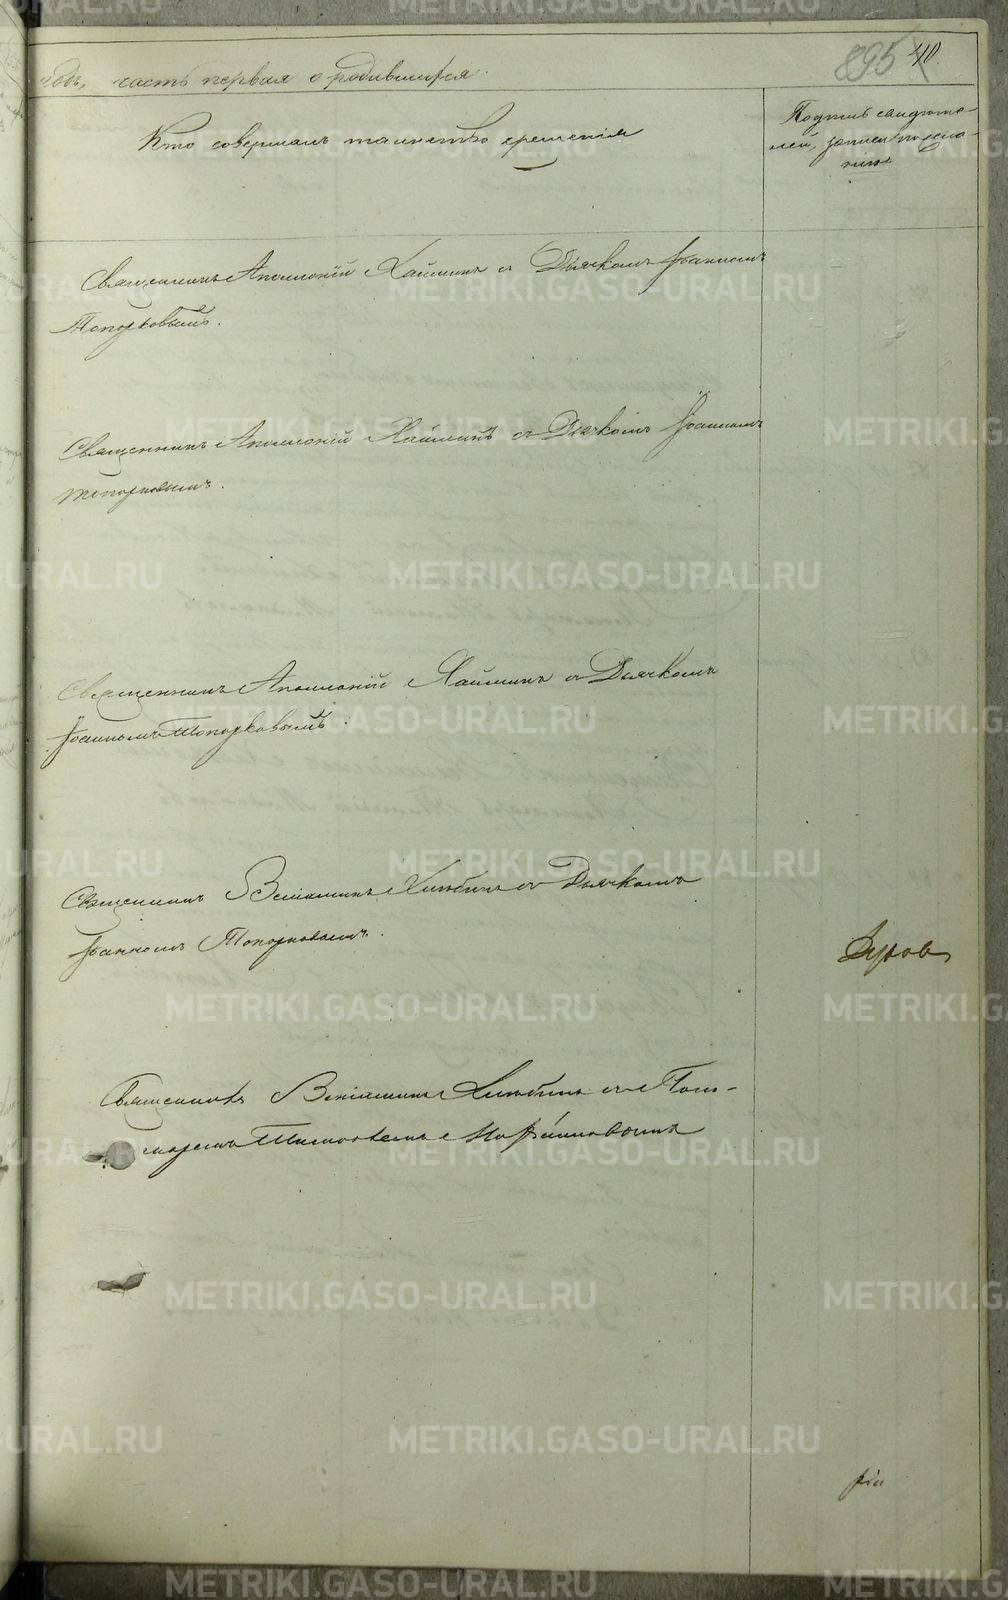 895 40.
годъ, часть первая о родившихся.
Кто совершалъ таинство крещенія
Подпись свидѣте-
лей записи по жела-
нію
Священникъ Аполлоній Хаймикъ съ Дьячкомъ Іоанномъ
Топорковымъ.
Священникъ Аполлоній съ Дьячкомъ Іоанномъ
Топорковымъ.
Священникъ Аполлоній съ Дьячкомъ
Іоанномъ Топорковымъ.
Священникъ Веніаминъ Хлюбинъ съ Дьячкомъ
Іоанномъ Топорковымъ.
Священникъ Веніаминъ Хлюбинъ съ Поно-
маремъ
METRIKI.GASO-URAL.RU